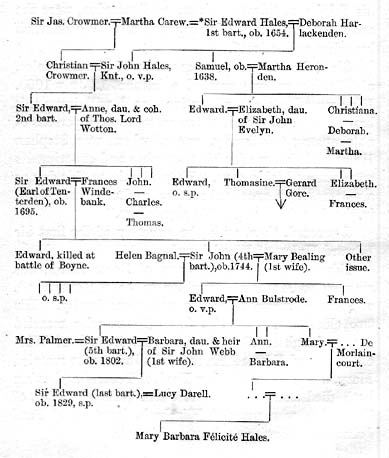 Sir Jas. Crowmer.=Martha Carew.=*Sir Edward Hales,=Deborah Har-
1st bart., ob. 1654. lackenden.
Christian=Sir John Hales, Samuel, ob.=Martha Heron-
Crowmer. Knt., o. v.p. 1638. den.
Sir Edward,=Anne, dau. & coh. Edward.=Elizabeth, dau. Christiana.
2nd bart. of Thos. Lord of Sir John —
Wotton. Evelyn. Deborah.
—
Martha.
Sir Edward=Frances John. Edward, Thomasine.=Gerard Elizabeth.
(Earl of Ten- Winde- — o. s.p. Gore. —
terden), ob. bank. Charles. Frances.
1695. —
Thomas.
Edward, killed at Helen Bagnal.=Sir John (4th=Mary Bealing Other
battle of Boyne. bart.), ob. 1744. (1st wife). issue.
o. s.p. Edward,=Ann Bulstrode. Frances.
o. v.p.
Mrs. Palmer.=Sir Edward=Barbara, dau. & heir Ann. Mary.=... De
(5th bart.), of Sir John Webb — Morlain-
ob. 1802. (1st wife). Barbara. court.
Sir Edward (last bart.),=Lucy Darell. ...=...
ob. 1829, s.p.
Mary Barbara Félicité Hales.